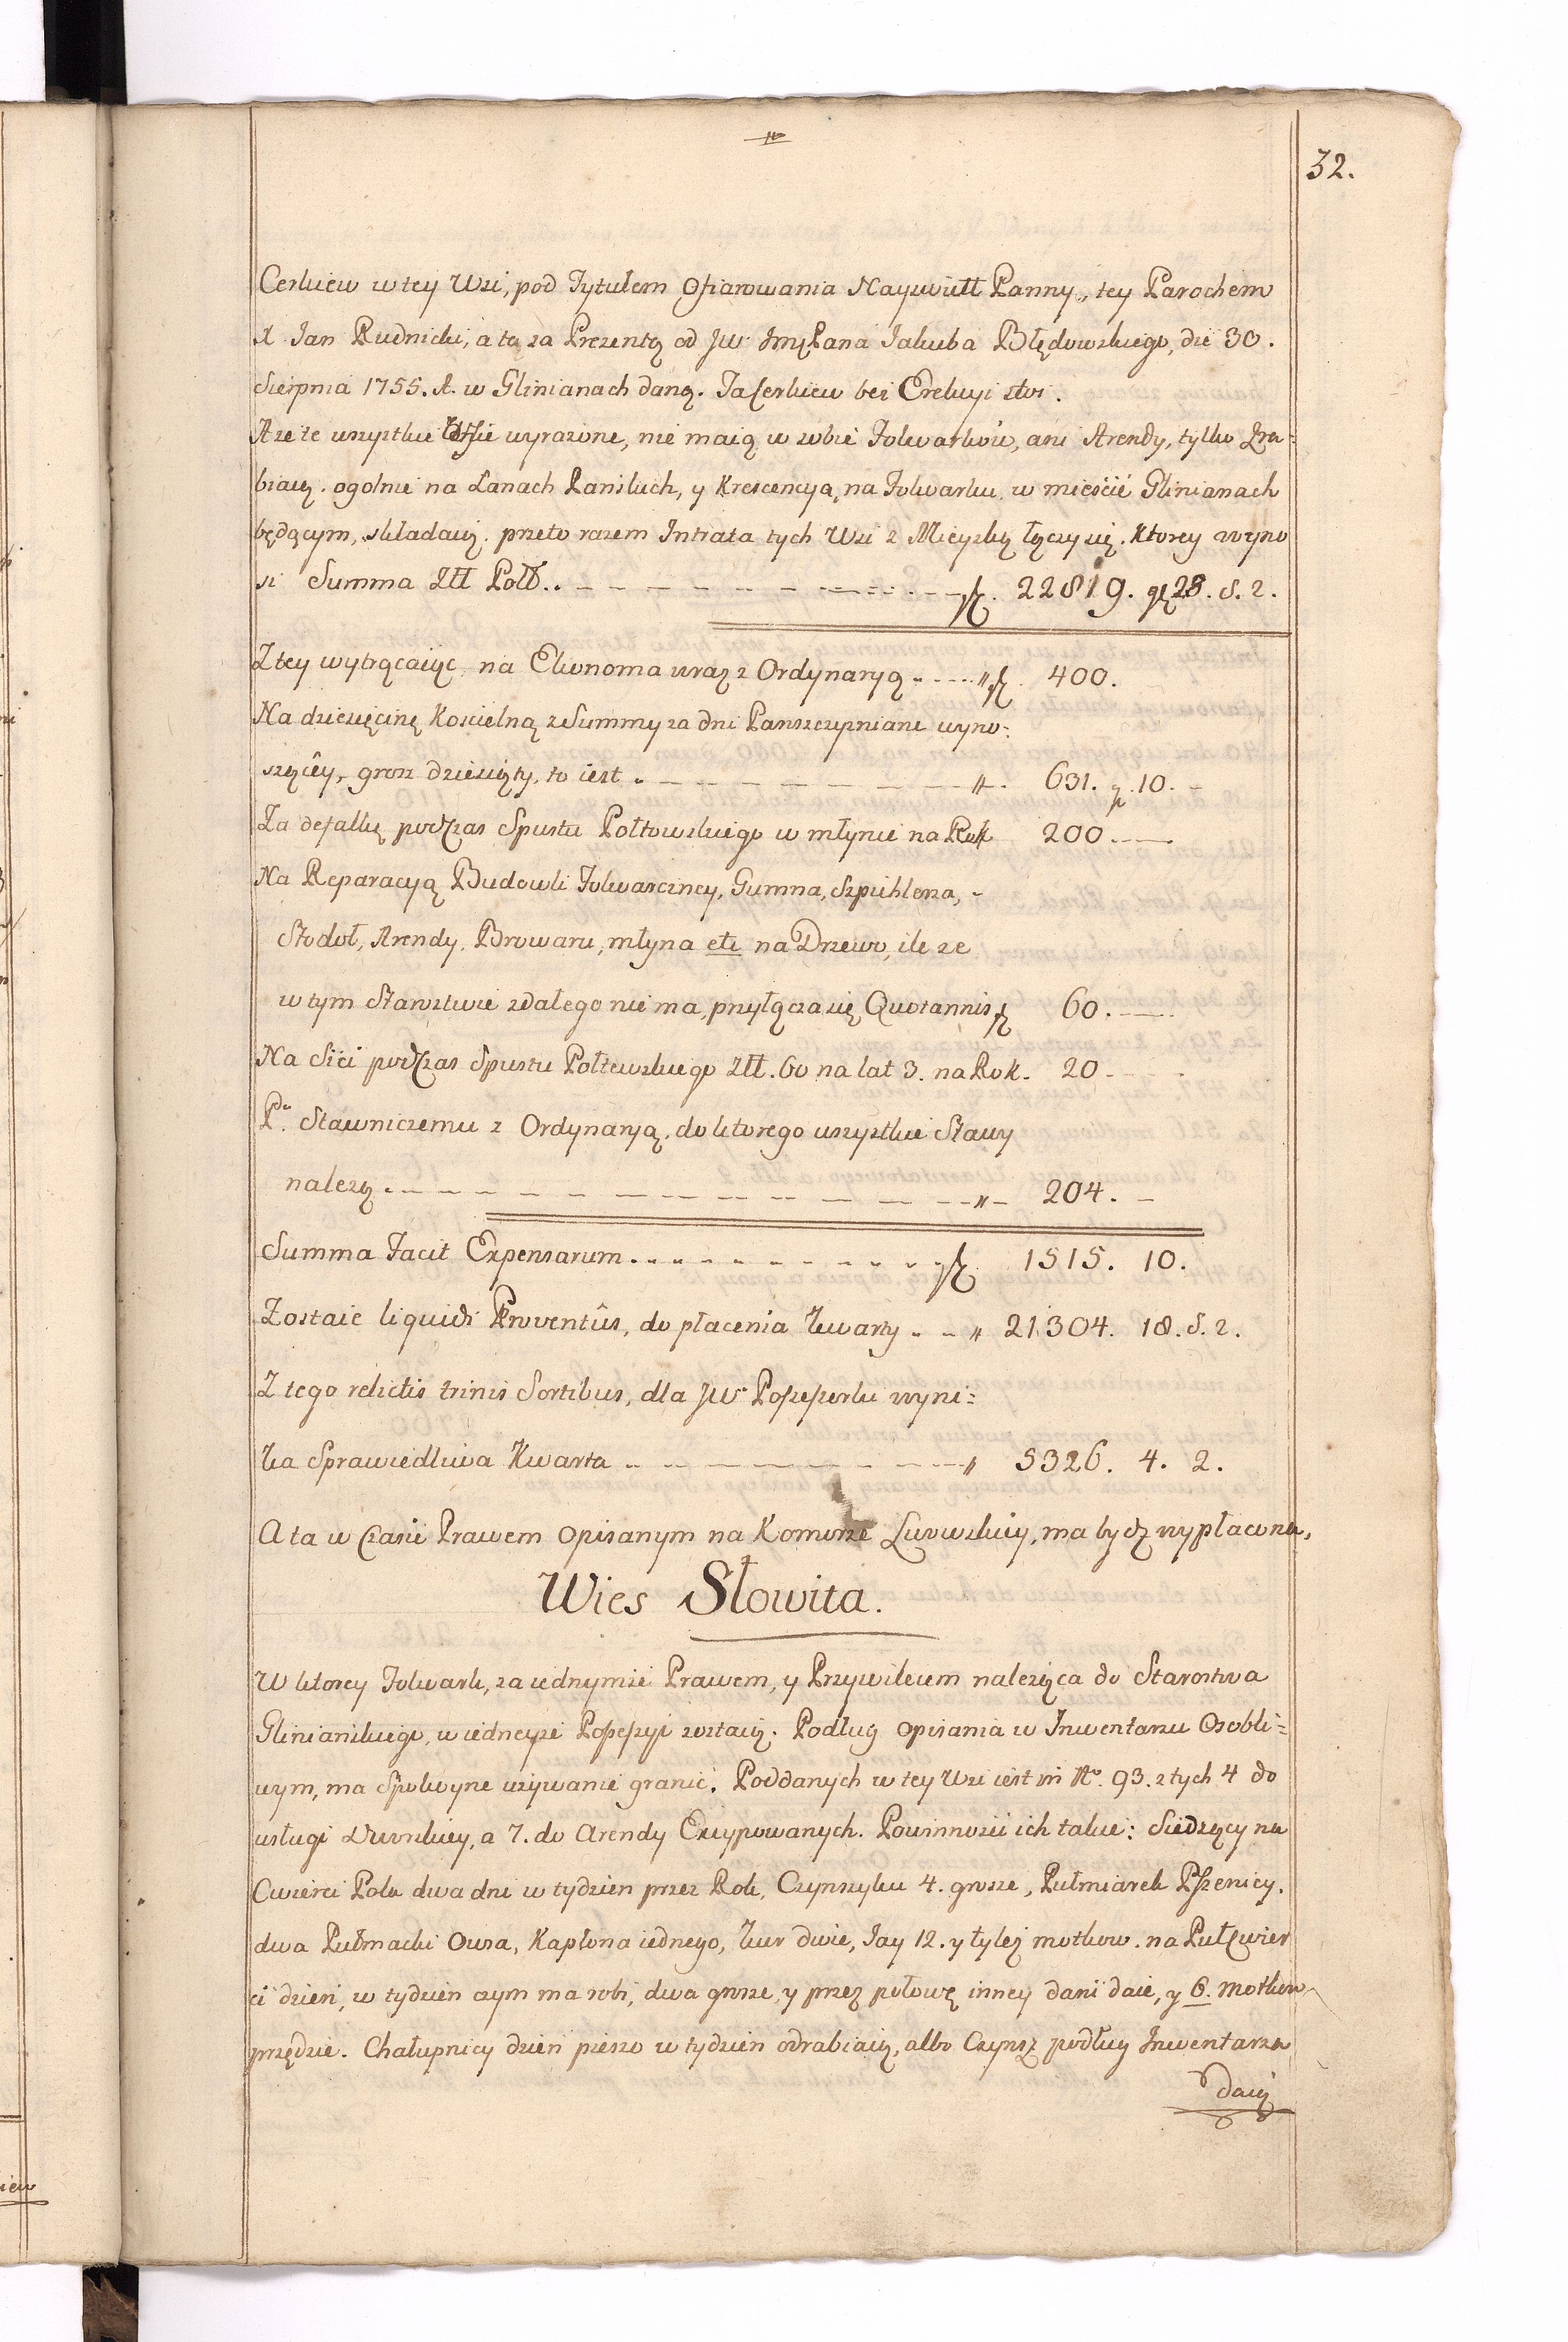 32.
Cerkiew w tey Wsi, pod Tytułem Ofiarowania Nayswiętt Panny, tey Parochem
X Jan Rudnicki, a to za Prezentą od JW JmęPana Jakuba Błędowskiego, die 30.
Sierpnia 1755. A. w Glinianach daną. Ta Cerkiew bez Erekcyi stoi.
A ze te wszystkie Wsie wyrazone, nie maią w sobie Folwarkow, ani Arendy, tylko Zra-
biaią ogolnie na Łanach Panskich, y Krescencyą na Folwarku w mieście Glinianach
będącym, składaią, przeto razem Intrata tych Wsi z Mieyską łączy się. Ktorey wyno
si Summa Złł Pol. 22819. gr 28. s. 2.
Z tey wytrącaiąc na Ekonoma wraz z Ordynaryą 400.
Na dziesięcinę Koscielną z Summy za dni Panszczyzniane wyno:
szącey, grosz dziesiąty, to iest 631. g. 10.
Za defalkę podczas Spustu Połtowskiego w młynie na Rok 200.
Na Reparacyą Budowli Folwarczney, Gumna, Szpihlerza,
Stodoł, Arendy, Browaru, młyna etc na Drzewo, ile ze
w tym Starostwie zdałego nie ma, przyłącza się Quotannis 60.
Na Sieci podczas Spustu Połtewskiego Złł. 60 na lat 3. na Rok. 20
Pu Stawniczemu z Ordynaryą, do ktorego wszystkie Stawy
nalezą 204.
Summa Facit Expensarum 1515. 10.
Zostaie liquidi Proventûs, do płacenia Kwarty 21304. 18. s. 2.
Z tego relictis trinis Sortibus, dla JW Possessorki wyni:
ka Sprawiedliwa Kwarta 5326. 4. 2.
A ta w Czasie Prawem opisanym na Komorze Lwowskiey, ma bydz wypłacona.
Wies Słowita.
W ktorey Folwark, za iednymze Prawem, y Przywileiem naleząca do Starostwa
Glinianskiego, w iedneyze Possessyi zostaią. Podług opisania w Inwentarzu Osobli-
wym, ma Spokoyne uzywanie granic. Poddanych w tey Wsi iest in No. 93. z tych 4 do
usługi Dworskiey, a 7. do Arendy Excypowanych. Powinnosci ich takie: Siedzący na
Cwierci Pola dwa dni w tydzien przez Rok, Czynszyku 4. grosze, Pułmiarek Pszenicy,
dwa Pułmacki Owsa, Kapłona iednego, Kur dwie, Jay 12. y tylez motkow. na Puł Cwier
ci dzień, w tydzien czym ma robi, dwa grosze, y przez połowę inney dani daie, y 6. motkow
przędzie. Chałupnicy dzień pieszo w tydzien odrabiaią, albo Czynsz podług Inwentarza
daią